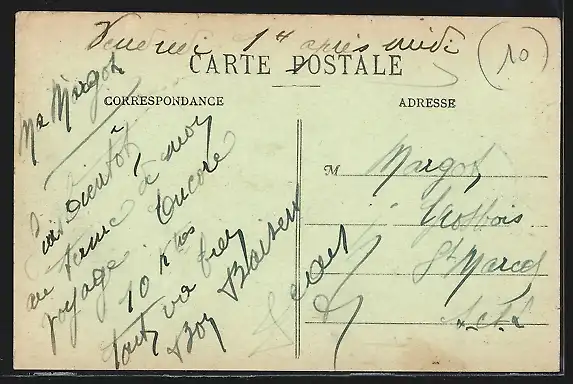 Vendredi 1h après midi
10
CARTE POSTALE
CORRESPONDANCE
ADRESSE
Margot
bientôt
au terme à mon
voyage. Encore
10 Kres
Tout va bien
Bon Baisers
M Margot
Grosbois
St Marcel